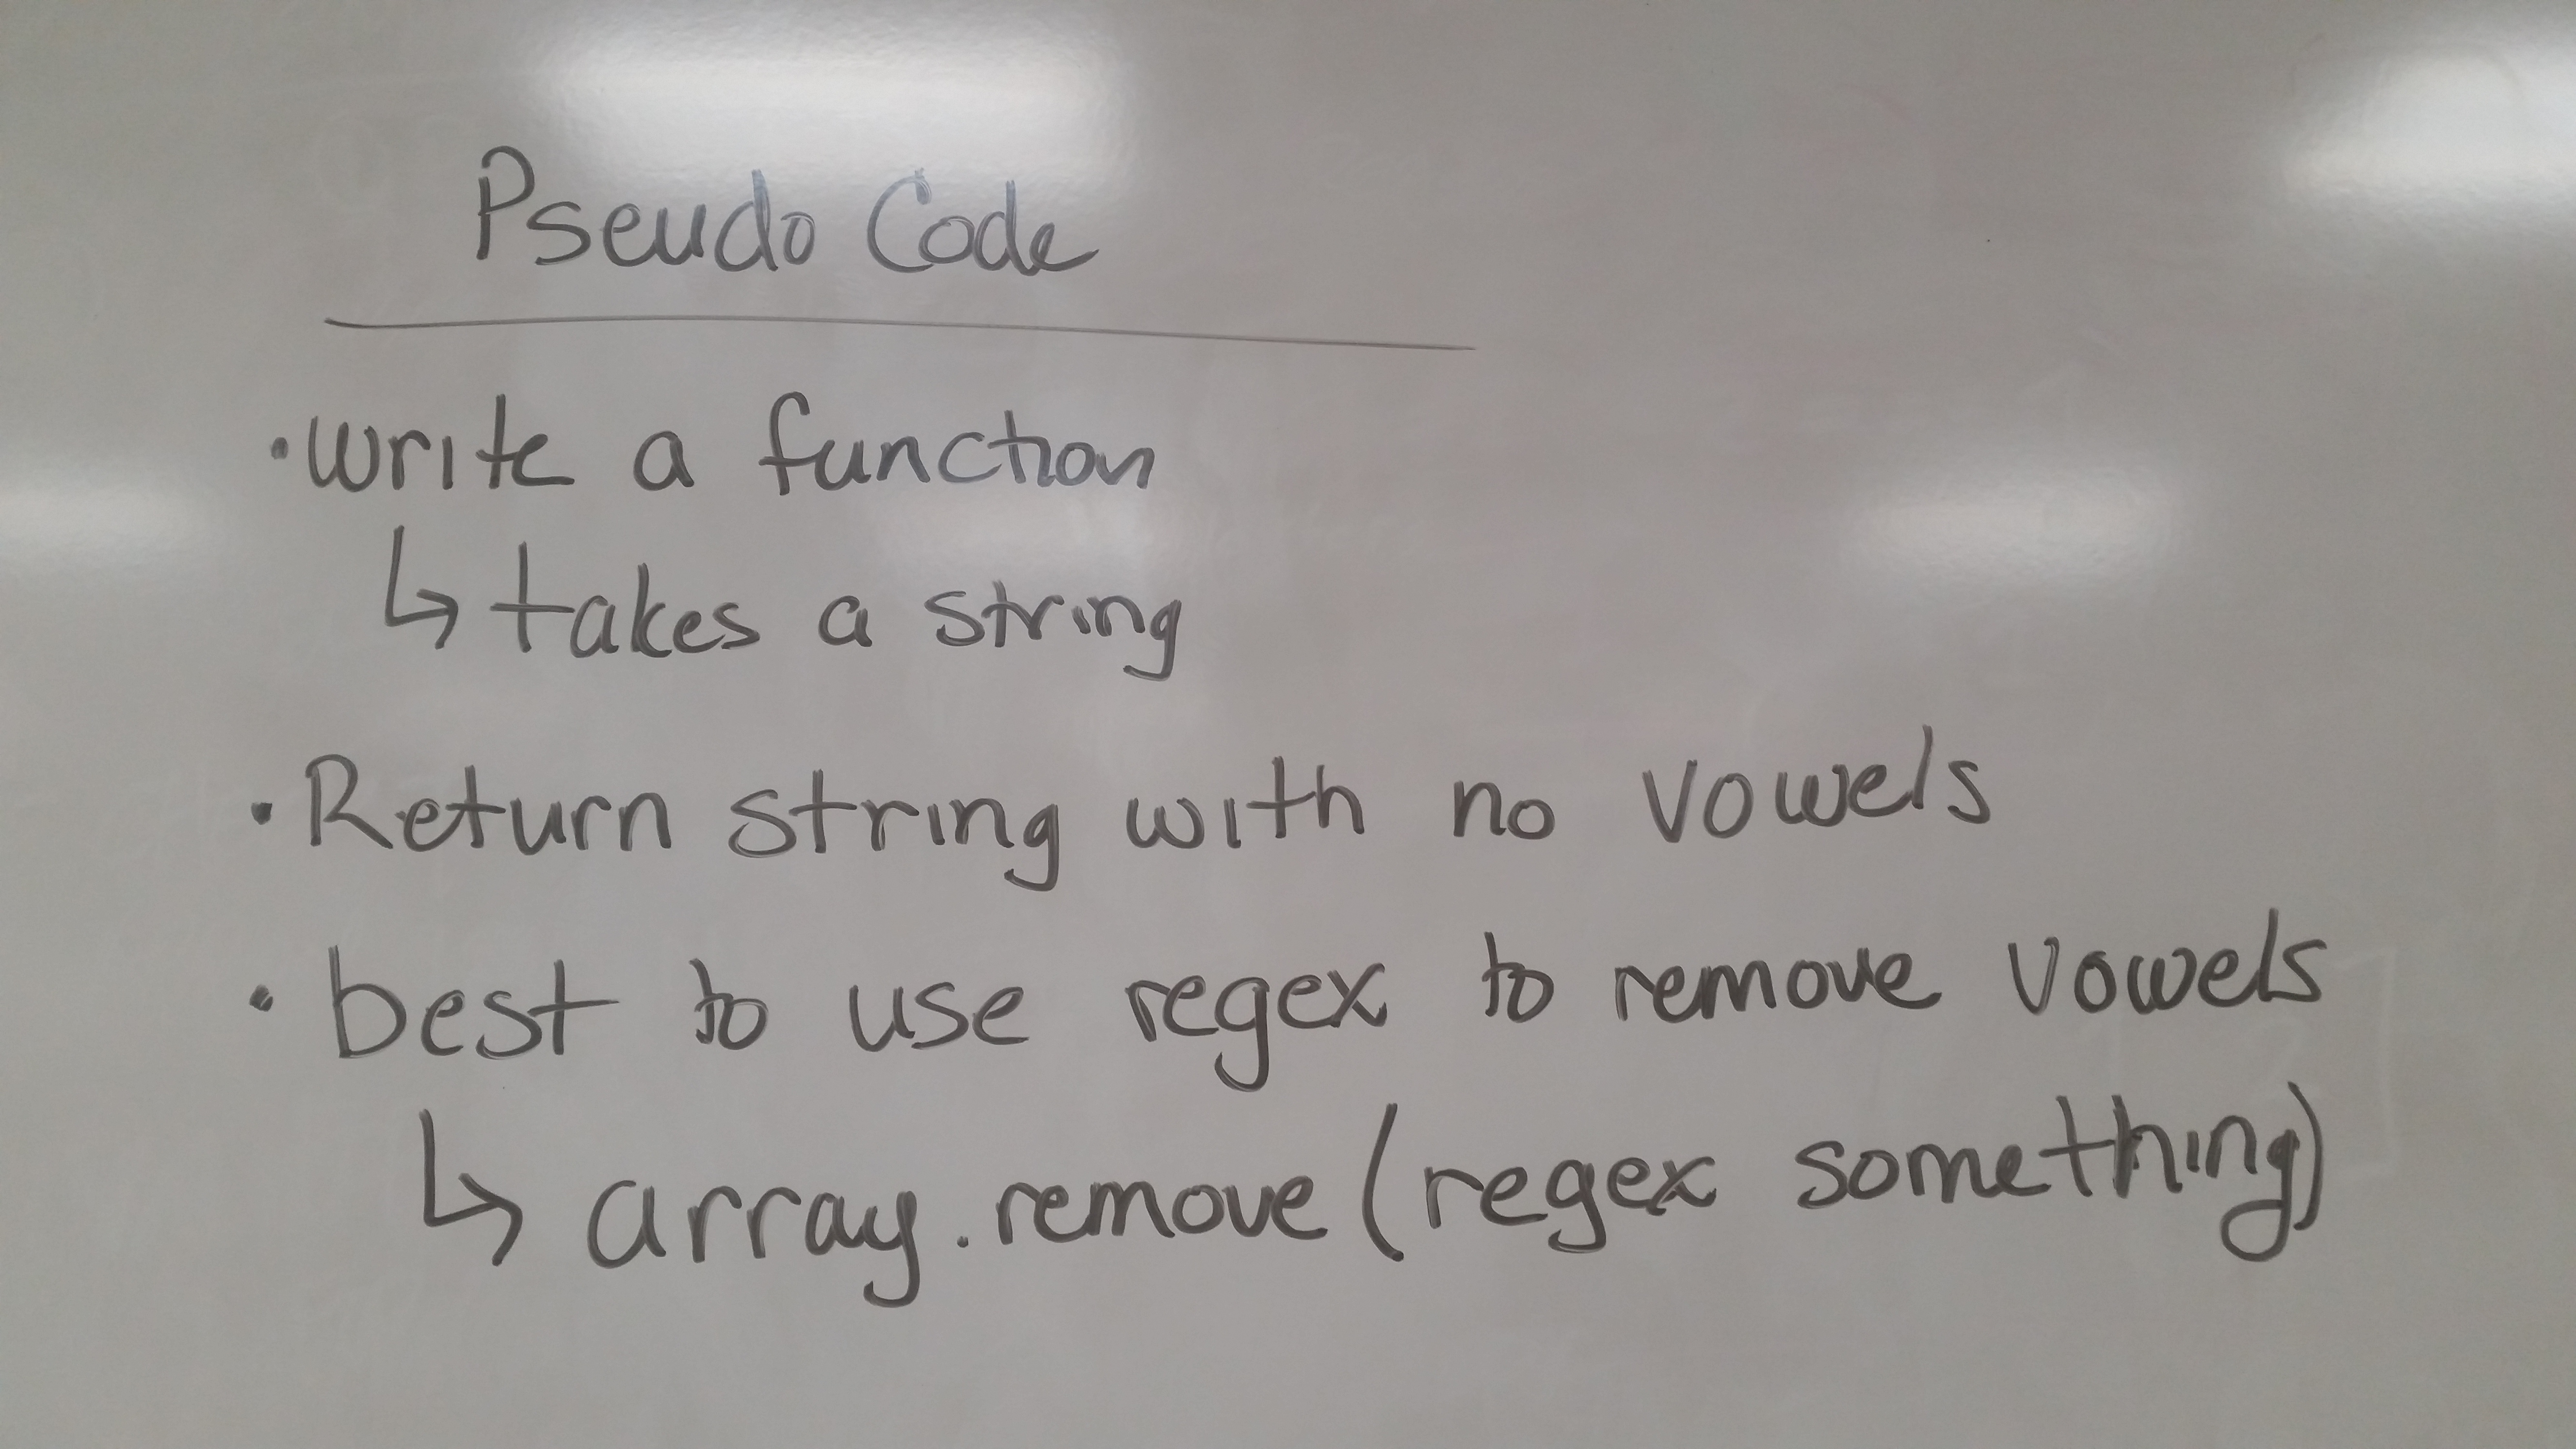 Pseudo Code
• write a function
↳ takes a string
• Return string with no vowels
• best to use regex to remove vowels
↳ array.remove(regex something)